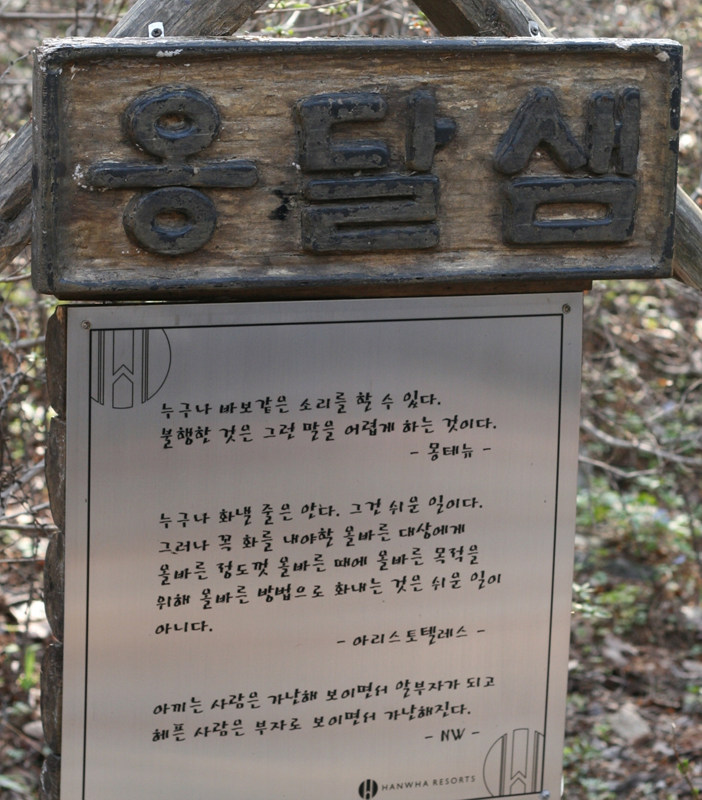 옹달샘
누구나 바보같은 소리를 할 수 있다.
불행한 것은 그런 말을 어렵게 하는 것이다.
- 몽테뉴 -
누구나 화낼 줄은 안다. 그건 쉬운 일이다.
그러나 꼭 화를 내야할 올바른 대상에게
올바른 정도껏 올바른 때에 올바른 목적을
위해 올바른 방법으로 화내는 것은 쉬운 일이
아니다.
- 아리스토텔레스 -
아끼는 사람은 가난해 보이면서 알부자가 되고
헤픈 사람은 부자로 보이면서 가난해진다.
- NW -
HANWHA RESORTS